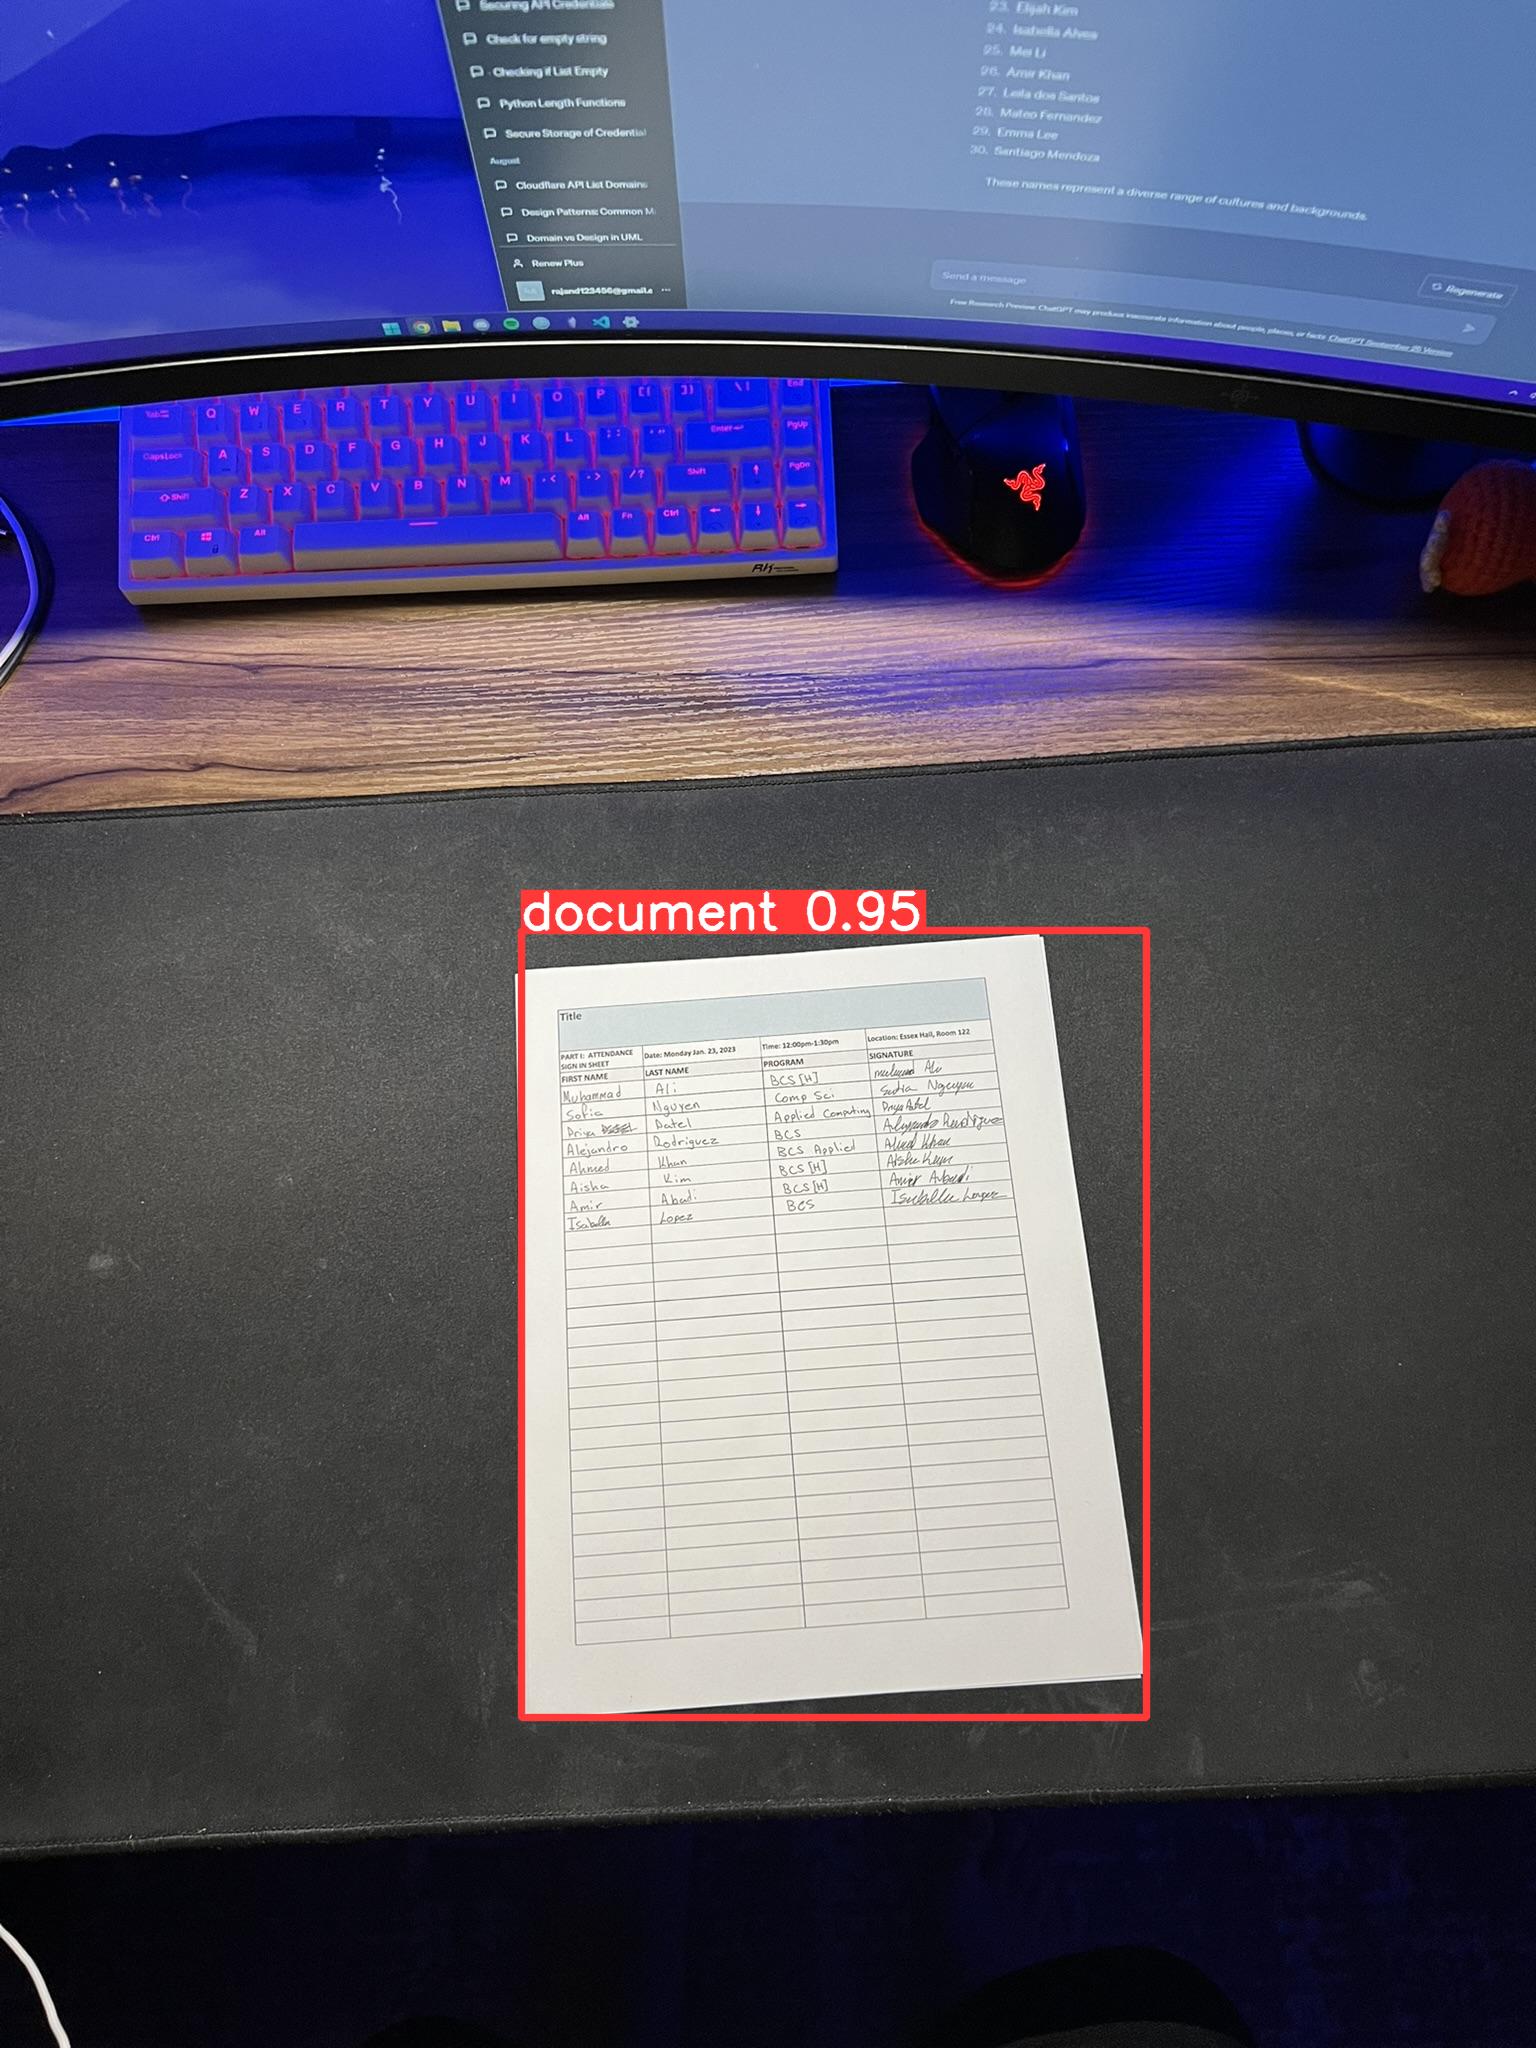 Securing API Credentials
Check for empty string
Checking if List Empty
Python Length Functions
Secure Storage of Credential
August
Cloudflare API List Domains
Design Patterns: Common M
Domain vs Design in UML
Renew Plus
rajand123456@gmail.c ...
23. Elijah Kim
24. Isabella Alves
25. Mei Li
26. Amir Khan
27. Leila dos Santos
28. Mateo Fernandez
29. Emma Lee
30. Santiago Mendoza
These names represent a diverse range of cultures and backgrounds.
Regenerate
Send a message
Free Research Preview. ChatGPT may produce inaccurate information about people, places, or facts. ChatGPT September 25 Version
Tab Q W E R T Y U I O P [{ ]} \| End
CapsLock A S D F G H J K L ;: '" Enter PgUp
Shift Z X C V B N M ,< .> /? Shift PgDn
Ctrl Alt Alt Fn Ctrl
RK
document 0.95
Title
PART I: ATTENDANCE SIGN IN SHEET Date: Monday Jan. 23, 2023 Time: 12:00pm-1:30pm Location: Essex Hall, Room 122
FIRST NAME LAST NAME PROGRAM SIGNATURE
Muhammad Ali BCS [H]
Sofia Nguyen Comp Sci Sofia Nguyen
Priya Patel Applied Computing Priya Patel
Alejandro Rodriguez BCS Alejandro Rodriguez
Ahmed Khan BCS Applied Ahmed Khan
Aisha Kim BCS [H] Aisha Kim
Amir Abadi BCS [H] Amir Abadi
Isabella Lopez BCS Isabella Lopez